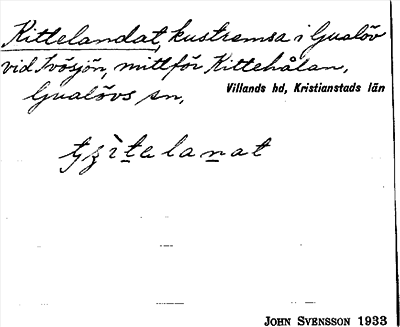 Kittelandat, kustremsa i Gualöv
vid Ivösjön, mittför Kittehålan,
Gualövs sn,
Villands hd, Kristianstads län
JOHN SVENSSON 1933